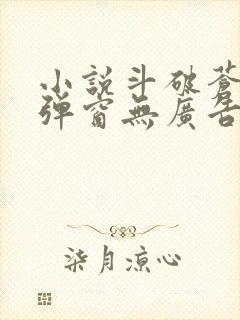 小說斗破蒼
彈窗無廣告
柒月涼心